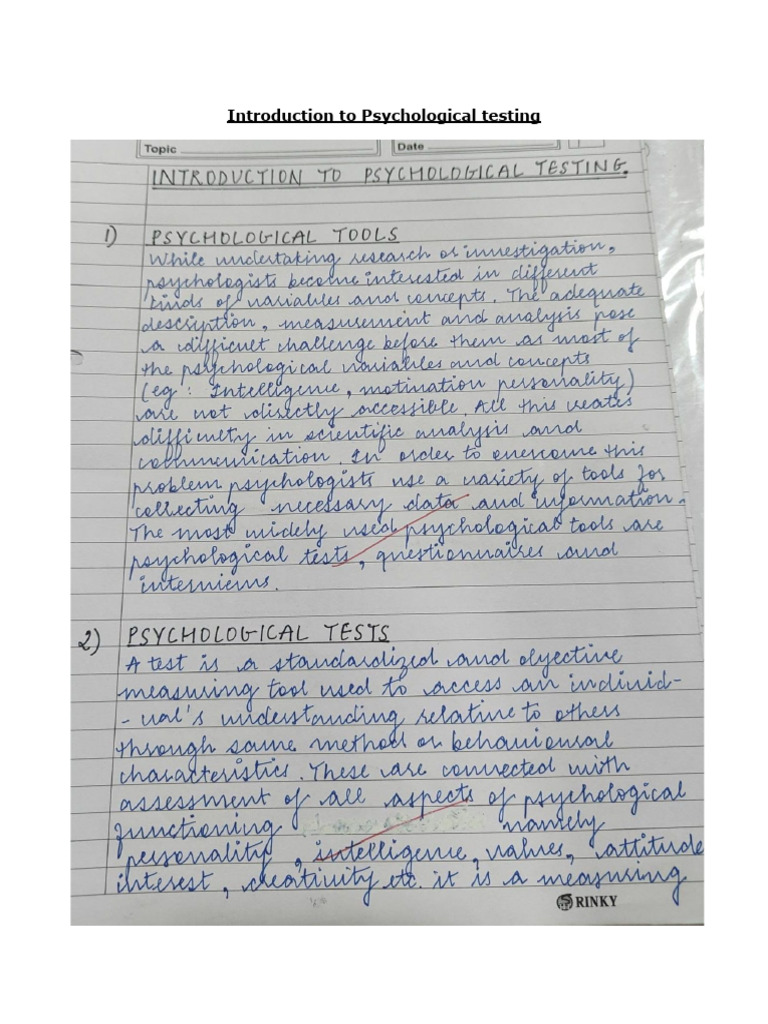 Introduction to Psychological testing
Topic
Date
INTRODUCTION TO PSYCHOLOGICAL TESTING.
1) PSYCHOLOGICAL TOOLS
While undertaking research or investigation,
psychologists become interested in different
kinds of variables and concepts. The adequate
description, measurement and analysis pose
a difficult challenge before them as most of
the psychological variables and concepts
(eg: Intelligence, motination personality)
are not directly accessible. All this creates
difficulty in scientific analysis and
communication. In order to overcome this
problem psychologists use a variety of tools for
collecting necessary data and information.
The most widely used psychological tools are
psychological tests, questionnaires and
interviews.
2) PSYCHOLOGICAL TESTS
A test is a standardized and objective
measuring tool used to access an individ-
-ual's understanding relative to others
through same method or behaviousral
characteristics. These are connected with
assessment of all aspects of psychological
functioning namely
personality, intelligence, values, attitude
interest, creativity etc. it is a measuring
RINKY